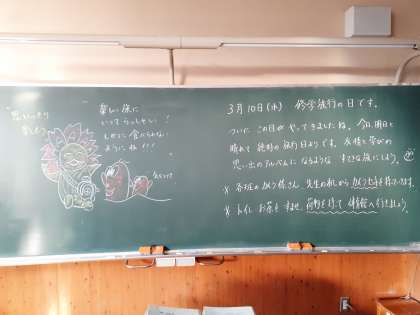 思いっきり
楽しもう
楽しい旅に
いってらっしゃい!
しかに食べられない
ようにね!!!
3月10日(水) 修学旅行の日です。
ついに この日が やってきましたね。今日、明日と
晴れて 絶好の旅行日より です。友情と学びの
思い出のアルバムに なるような すてきな旅にしよう。
※ 各班の カメラ係さん、先生の机から カメラセットを持って
※ トイレ お茶を すませ、荷物を持って 体育館へ行きましょう。